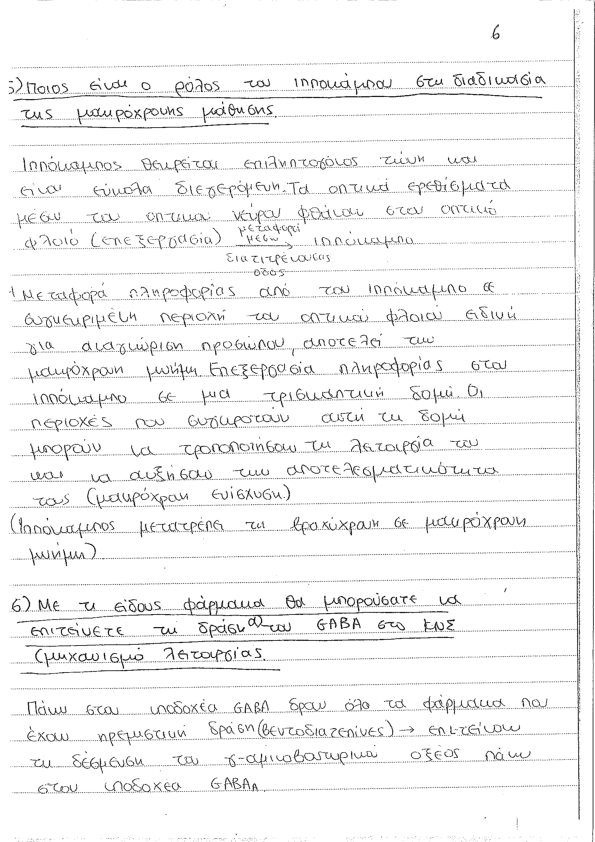 6
5) Ποιος είναι ο ρόλος του ιππόκαμπου στη διαδικασία
της μακρόχρονης μάθησης.
Ιππόκαμπος θεωρείται επιληπτογόνος ζώνη και
είναι εύκολα διεγερόμενη. Τα οπτικά ερεθίσματα
μέσω του οπτικού νεύρου φθάνουν στον οπτικό
φλοιό (επεξεργασία) μεταφορά μέσω διατιτρένουσας οδός → ιππόκαμπο
Μεταφορά πληροφορίας από τον ιππόκαμπο σε
συγκεκριμένη περιοχή του οπτικού φλοιού ειδική
για αναγνώριση προσώπου, αποτελεί την
μακρόχρονη μνήμη. Επεξεργασία πληροφορίας στον
ιππόκαμπο σε μια τρισυναπτική δομή. Οι
περιοχές που συγκροτούν αυτή τη δομή
μπορούν να τροποποιήσουν τη λειτουργία του
και να αυξήσουν την αποτελεσματικότητα
τους (μακρόχρονη ενίσχυση.)
(Ιππόκαμπος μετατρέπει τη βραχύχρονη σε μακρόχρονη
μνήμη)
6) Με τι είδους φάρμακα θα μπορούσατε να
επιτείνετε τη δράση α) του GABA στο ΚΝΣ
(μηχανισμό λειτουργίας.
Πάνω στον υποδοχέα GABA δρουν όλα τα φάρμακα που
έχουν ηρεμιστική δράση (βενζοδιαζεπίνες) → επιτείνουν
τη δέσμευση του γ-αμινοβουτυρικού οξέος πάνω
στον υποδοχέα GABAA